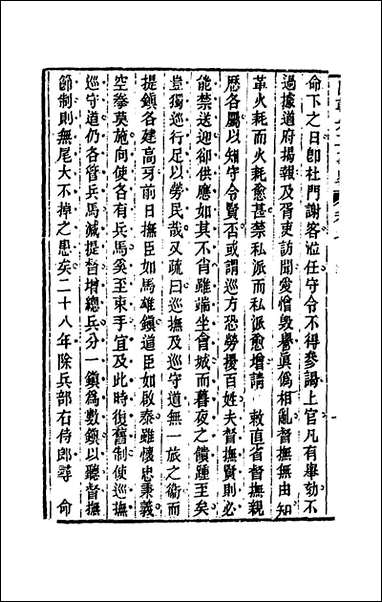 命下之日卽杜門謝客涖任守令不得參謁上官凡有舉劾不
過據道府揭報及胥吏訪聞愛憎毀譽眞僞相亂督撫無由知
革火耗而火耗愈甚禁私派而私派愈增請 敕直省督撫親
歷各屬以知守令賢否或謂巡方恐勞擾百姓夫督撫賢則必
能禁送迎卻供應如其不肖雖端坐會城而暮夜之饋踵至矣
豈獨巡行足以勞民哉又疏曰巡撫及巡守道無一旅之衞而
提鎭各建高牙前日撫臣如馬雄鎭道臣如陳啟泰雖懷忠秉義
空拳莫施向使各有兵馬奚至束手宜及此時復舊制使巡撫
巡守道仍各管兵馬減提督增總兵分一鎭爲數鎭以聽督撫
節制則無尾大不掉之患矣二十八年除兵部右侍郎尋 命